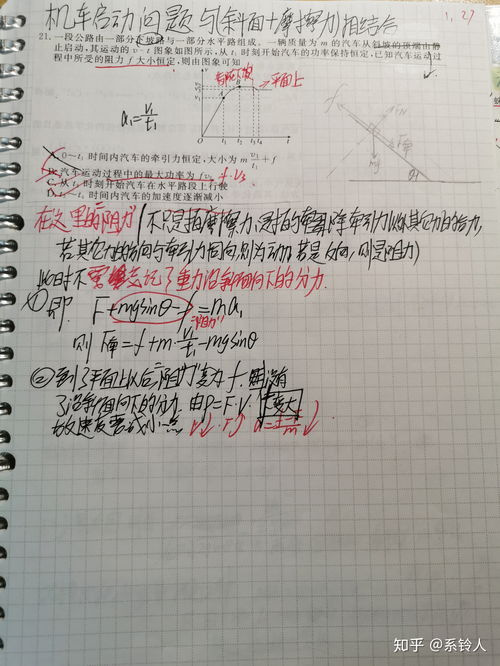 机车启动问题与(斜面+摩擦力)相结合
1,27
21. 一段公路由一部分下坡路与一部分水平路组成。一辆质量为 m 的汽车从斜坡的顶端由静
止启动,其运动的 v-t 图象如图所示,从 t₁ 时刻开始汽车的功率保持恒定,已知汽车运动过
程中所受的阻力 f 大小恒定,则由图象可知
v
v₂
v₃
v₁
→平面上
O t₁ t₂ t₃ t₄ t
a₁=v₁/t₁
f
FN
F牵
mg
θ
A. 0~t₁ 时间内汽车的牵引力恒定,大小为 m v₁/t₁ + f
B. 汽车运动过程中的最大功率为 fv₂ f·v₃
C. 从 t₂ 时刻开始汽车在水平路段上行驶
D. t₁~t₂ 时间内汽车的加速度逐渐减小
在这里的"阻力"(不只是指摩擦力,是指的除牵引力以外其它力的合力,
若其它力的方向与牵引力同向,则为动力,若是反向,则是阻力)
此时不要忘记了重力沿斜面向下的分力.
① 即 F+mgsinθ-f=ma₁
"阻力"
则 F牵=f+m·v₁/t₁-mgsinθ
② 到了平面上以后"阻力"变为 f. 没有
了沿斜面向下的分力. 由P=F·V. 变大
故速度要减小一点. V↓·F↑
知乎 @系铃人